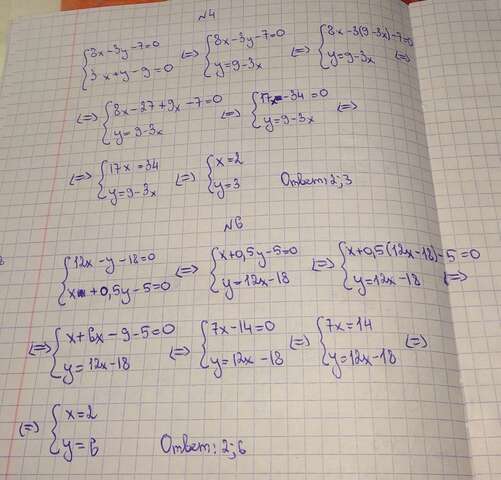 №4
{8x-3y-7=0 {3x+y-9=0 <=> {8x-3y-7=0 {y=9-3x <=> {8x-3(9-3x)-7=0 {y=9-3x <=>
<=> {8x-27+9x-7=0 {y=9-3x <=> {17x-34=0 {y=9-3x <=>
<=> {17x=34 {y=9-3x <=> {x=2 {y=3 Ответ: 2;3
№6
{12x-y-18=0 {x+0,5y-5=0 <=> {x+0,5y-5=0 {y=12x-18 <=> {x+0,5(12x-18)-5=0 {y=12x-18 <=>
<=> {x+6x-9-5=0 {y=12x-18 <=> {7x-14=0 {y=12x-18 <=> {7x=14 {y=12x-18 <=>
<=> {x=2 {y=6 Ответ: 2;6